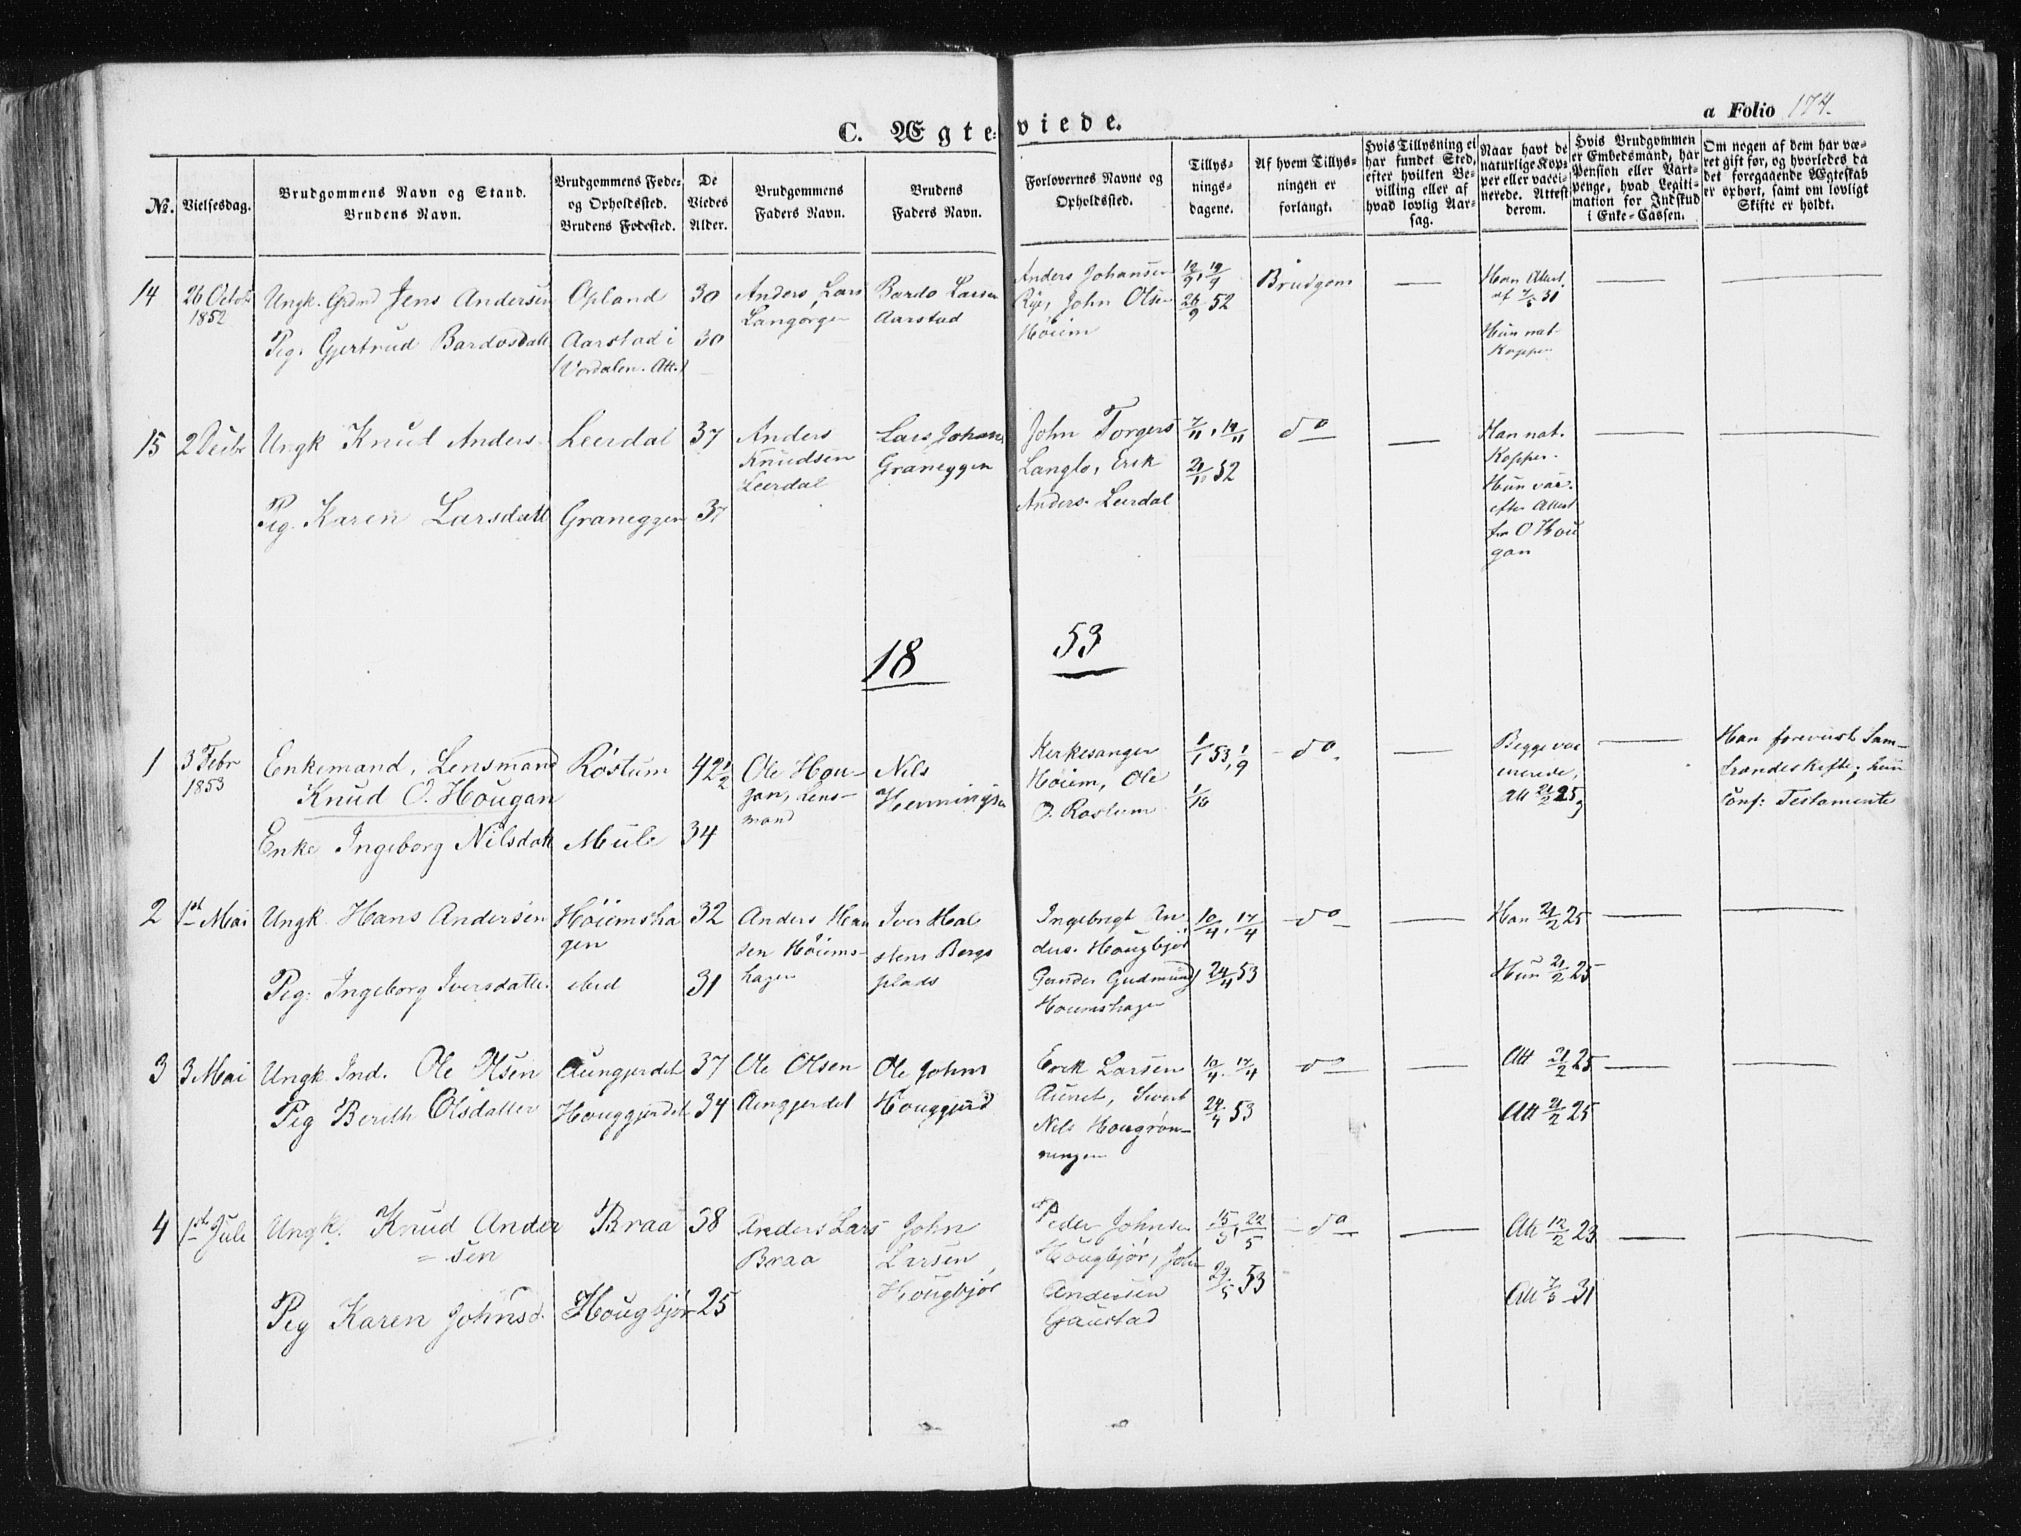 C. Ægteviede.
a Folio 174.
№.
Vielsesdag.
Brudgommens Navn og Stand.
Brudens Navn.
Brudgommens Føde-
og Opholdssted.
Brudens Fødested.
De
Viedes
Alder.
Brudgommens
Faders Navn.
Brudens
Faders Navn.
Forlovernes Navne og
Opholdssted.
Tillys-
nings-
dagene.
Af hvem Tillys-
ningen er
forlangt.
Hvis Tillysning ei
har fundet Sted,
efter hvilken Be-
villing eller af
hvad lovlig Aar-
sag.
Naar havt de
naturlige Kop-
per eller vacci-
nerede. Attest
derom.
Hvis Brudgommen
er Embedsmand, har
Pension eller Vart-
penge, hvad Legiti-
mation for Indskud
i Enke-Cassen.
Om nogen af dem har væ-
ret gift før, og hvorledes da
det foregaaende Ægteskab
er ophørt, samt om lovligt
Skifte er holdt.
14
26 Octob
1852
Ungk. Grdmd Jens Andersen
Peg. Gjertrud Bardosdatt
Opland
Aarstad i
(Værdalen. Att.)
30
30
Anders Lars
Langørgen
Bardo Larsen
Aarstad
Anders Johansen
Rye, John Olsen
Høiem
12/9, 19/9
26/9 52
Brudgom
—
Han Attest
af 7/5 31
Hun nat.
Kopper
—
—
15
2 Decbr
Ungk Knud Anders.
Peg. Karen Larsdatt
Leerdal
Graneggen
37
37
Anders
Knudsen
Leerdal
Lars Johans
Graneggen
John Torgers
Langlo, Erik
Anders. Leerdal
7/11, 14/11
21/11 52
do
—
Han nat.
Kopper.
Hun vac.
efter Attest
fra O Hou
gan
—
—
18 53
1
3 Febr
1853
Enkemand, Lensmand
Knud O. Hougan
Enke Ingeborg Nilsdatt
Rostum
Mule
42½
34
Ole Hou-
gan, Lens-
mand
Nils
Henningsen
Kirkesanger
Høiem, Ole
O. Rostum
1/1 53, 1/9
1/16
do.
—
Begge vac
cinerede,
Att 21/2 25
—
Han foreviist Sam-
frændeskifte; hun
Conf: Testamente
2
1st Mai
Ungk. Hans Andersen
Peg: Ingeborg Iversdatter
Høiemsha
gen
ibid
32
31
Anders Han
sen Høiems-
hagen
Iver Hal
stens Bergs
plads
Ingebrigt An
ders. Hougbjør
Gunder Gudmund
Houmshagen
10/4, 17/4
24/4 53
do
—
Han 21/2 25
Hun 21/2 25
—
—
3
3 Mai
Ungk. Ind. Ole Olsen
Peg Berith Olsdatter
Aungjerdet
Houggjerdet
37
34
Ole Olsen
Aungjerdet
Ole Johns
Houggjerd
Erik Larsen
Aunet, Sivert
Nils Hougrøn-
ningen
10/4, 17/4
24/4 53
do
—
Att 21/2 25
Att 21/2 25
—
—
4
1ste Juli
Ungk. Knud Ander
= sen
Peg Karen Johnsd.
Braa
Hougbjør
38
25
Anders Lars
Braa
John
Larsen,
Hougbjør
Peder Johnsen
Hougbjør, John
Andersen
Gaustad
15/5, 22/5
29/5 53
do
—
Att 12/2 23
Att 7/5 31
—
—